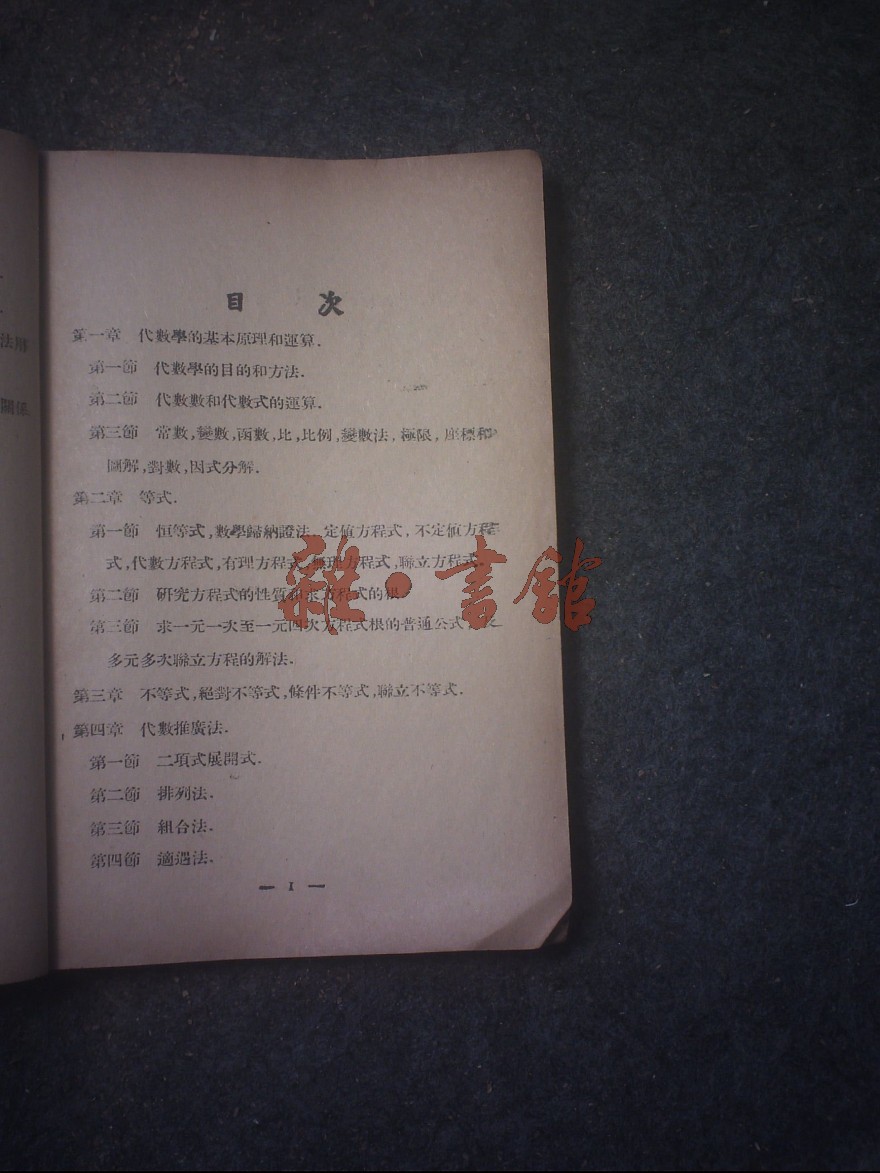 法用
關係
目 次
第一章 代數學的基本原理和運算.
第一節 代數學的目的和方法.
第二節 代數數和代數式的運算.
第三節 常數,變數,函數,比,比例,變數法,極限,座標和
圖解,對數,因式分解.
第二章 等式.
第一節 恒等式,數學歸納證法,定值方程式,不定值方程
式,代數方程式,有理方程式,無理方程式,聯立方程式.
第二節 研究方程式的性質和求方程式的根.
第三節 求一元一次至一元四次方程式根的普通公式
多元多次聯立方程的解法.
第三章 不等式,絕對不等式,條件不等式,聯立不等式.
第四章 代數推廣法.
第一節 二項式展開式.
第二節 排列法.
第三節 組合法.
第四節 適遇法.
— I —
雜·書館